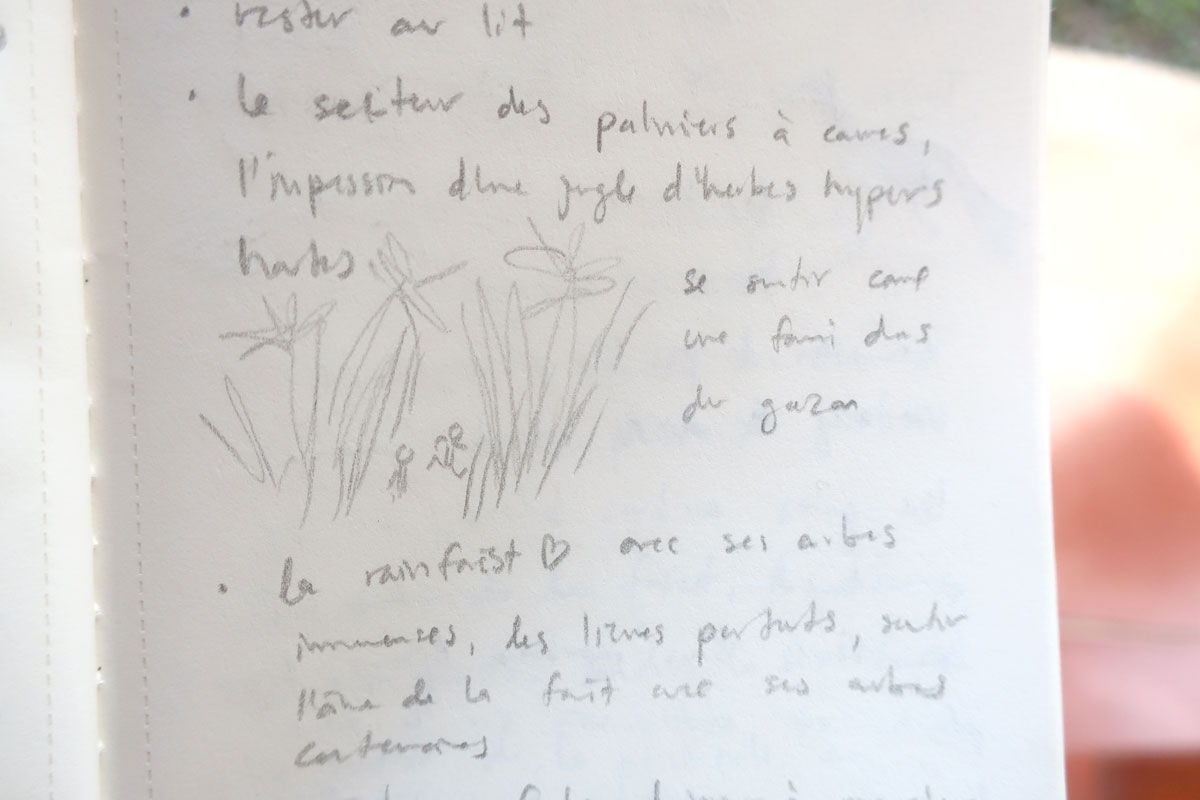 • rester au lit
• le secteur des palmiers à cannes,
l'impression d'une jungle d'herbes hypers
hautes
se sentir comme
une fourmi dans
du gazon
• la rainforest ♡ avec ses arbres
immenses, les lianes partouts, sentir
l'âme de la forêt avec ses arbres
centenaires